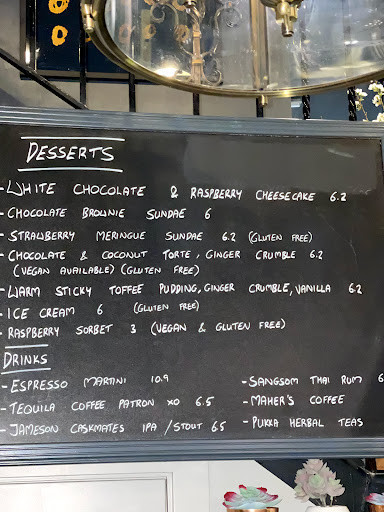 DESSERTS
- WHITE CHOCOLATE & RASPBERRY CHEESECAKE 6.2
- CHOCOLATE BROWNIE SUNDAE 6
- STRAWBERRY MERINGUE SUNDAE 6.2 (GLUTEN FREE)
- CHOCOLATE & COCONUT TORTE, GINGER CRUMBLE 6.2
(VEGAN AVAILABLE) (GLUTEN FREE)
- WARM STICKY TOFFEE PUDDING, GINGER CRUMBLE, VANILLA 6.2
- ICE CREAM 6 (GLUTEN FREE)
- RASPBERRY SORBET 3 (VEGAN & GLUTEN FREE)
DRINKS
- ESPRESSO MARTINI 10.9
- TEQUILA COFFEE PATRON XO 6.5
- JAMESON CASKMATES IPA / STOUT 6.5
- SANGSOM THAI RUM 6
- MAHER'S COFFEE
- PUKKA HERBAL TEAS